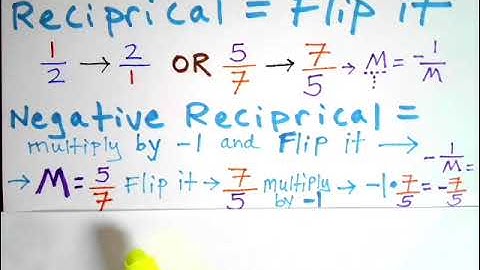 Reciprical = Flip it
1/2 → 2/1 OR 5/7 → 7/5 → M = -1/M
Negative Reciprical =
multiply by -1 and Flip it → -1/M =
→ M = 5/7 Flip it → 7/5 multiply by -1 → -1 · 7/5 = -7/5